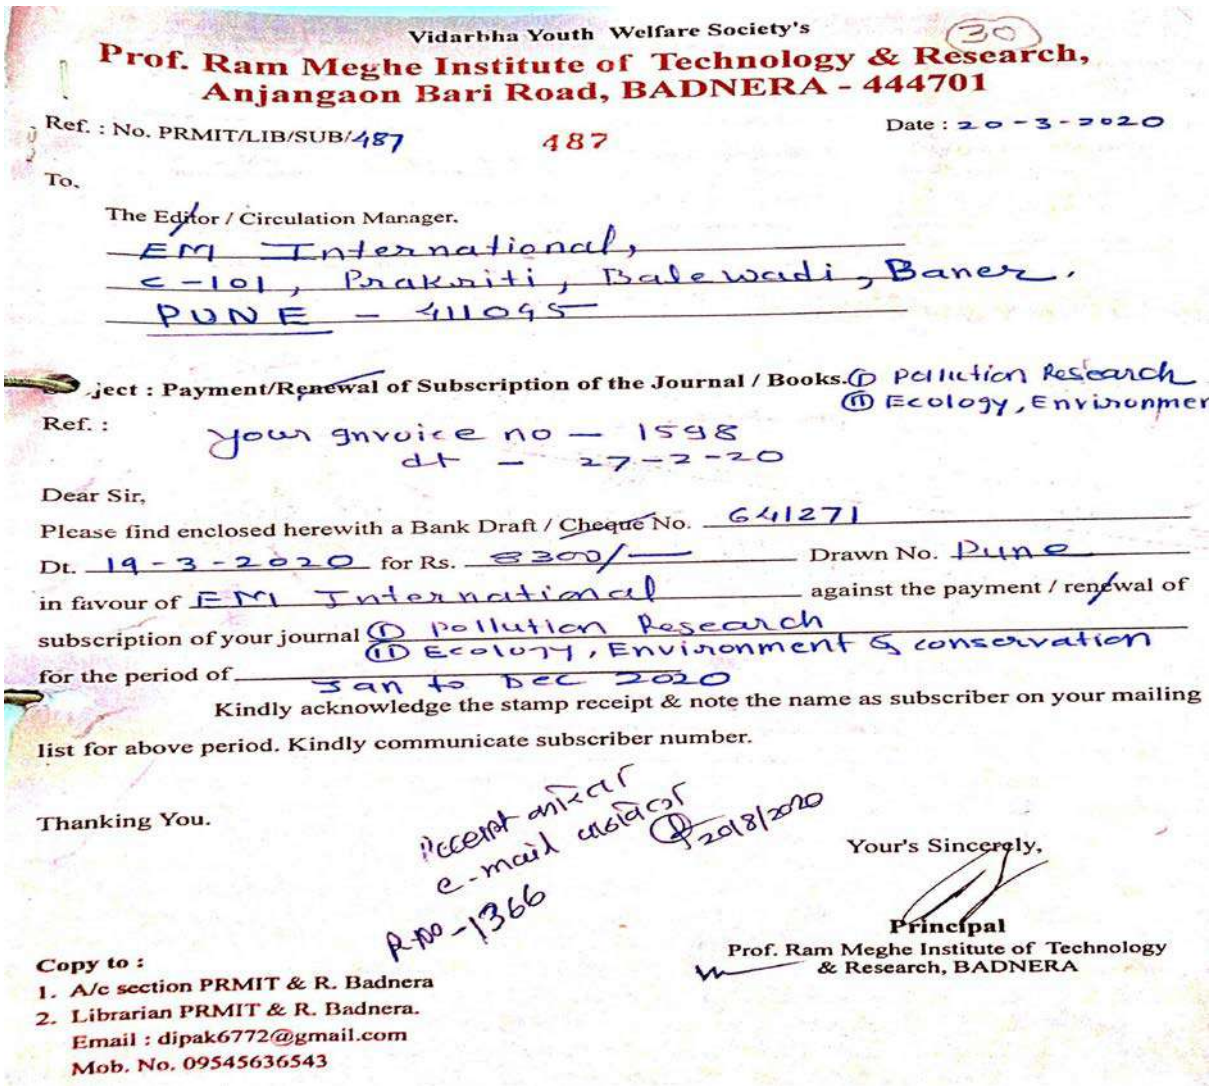 Vidarbha Youth Welfare Society's
30
Prof. Ram Meghe Institute of Technology & Research,
Anjangaon Bari Road, BADNERA - 444701
Ref. : No. PRMIT/LIB/SUB/487 487 Date : 20-3-2020
To,
The Editor / Circulation Manager.
EM International,
C-101, Prakriti, Balewadi, Baner.
PUNE - 411045
ject : Payment/Renewal of Subscription of the Journal / Books. (I) Pollution Research
(II) Ecology, Environmen
Ref. :
Your Invoice no - 1598
dt - 27-2-20
Dear Sir,
Please find enclosed herewith a Bank Draft / Cheque No. 641271
Dt. 19-3-2020 for Rs. 8300/- Drawn No. Pune
in favour of EM International against the payment / renewal of
subscription of your journal (I) Pollution Research
(II) Ecology, Environment & conservation
for the period of Jan to Dec 2020
Kindly acknowledge the stamp receipt & note the name as subscriber on your mailing
list for above period. Kindly communicate subscriber number.
Thanking You.
e-mail
R.No-1366
Your's Sincerely,
Principal
Prof. Ram Meghe Institute of Technology
& Research, BADNERA
Copy to :
1. A/c section PRMIT & R. Badnera
2. Librarian PRMIT & R. Badnera.
Email : dipak6772@gmail.com
Mob. No. 09545636543